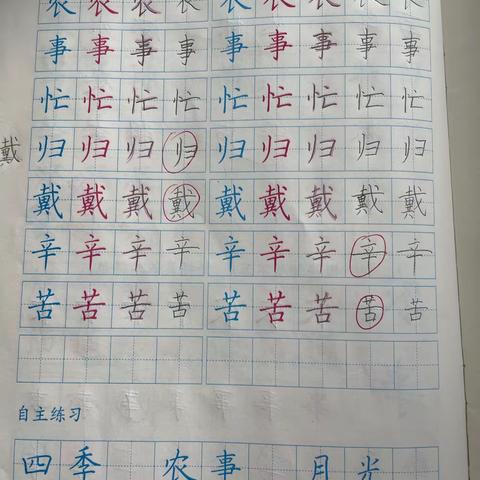 农农农农农农农农农
事事事事事事事事事
忙忙忙忙忙忙忙忙忙
归归归归归归归归归
戴
戴戴戴戴戴戴戴戴戴
辛辛辛辛辛辛辛辛辛
苦苦苦苦苦苦苦苦苦
自主练习
四季 农事 月光